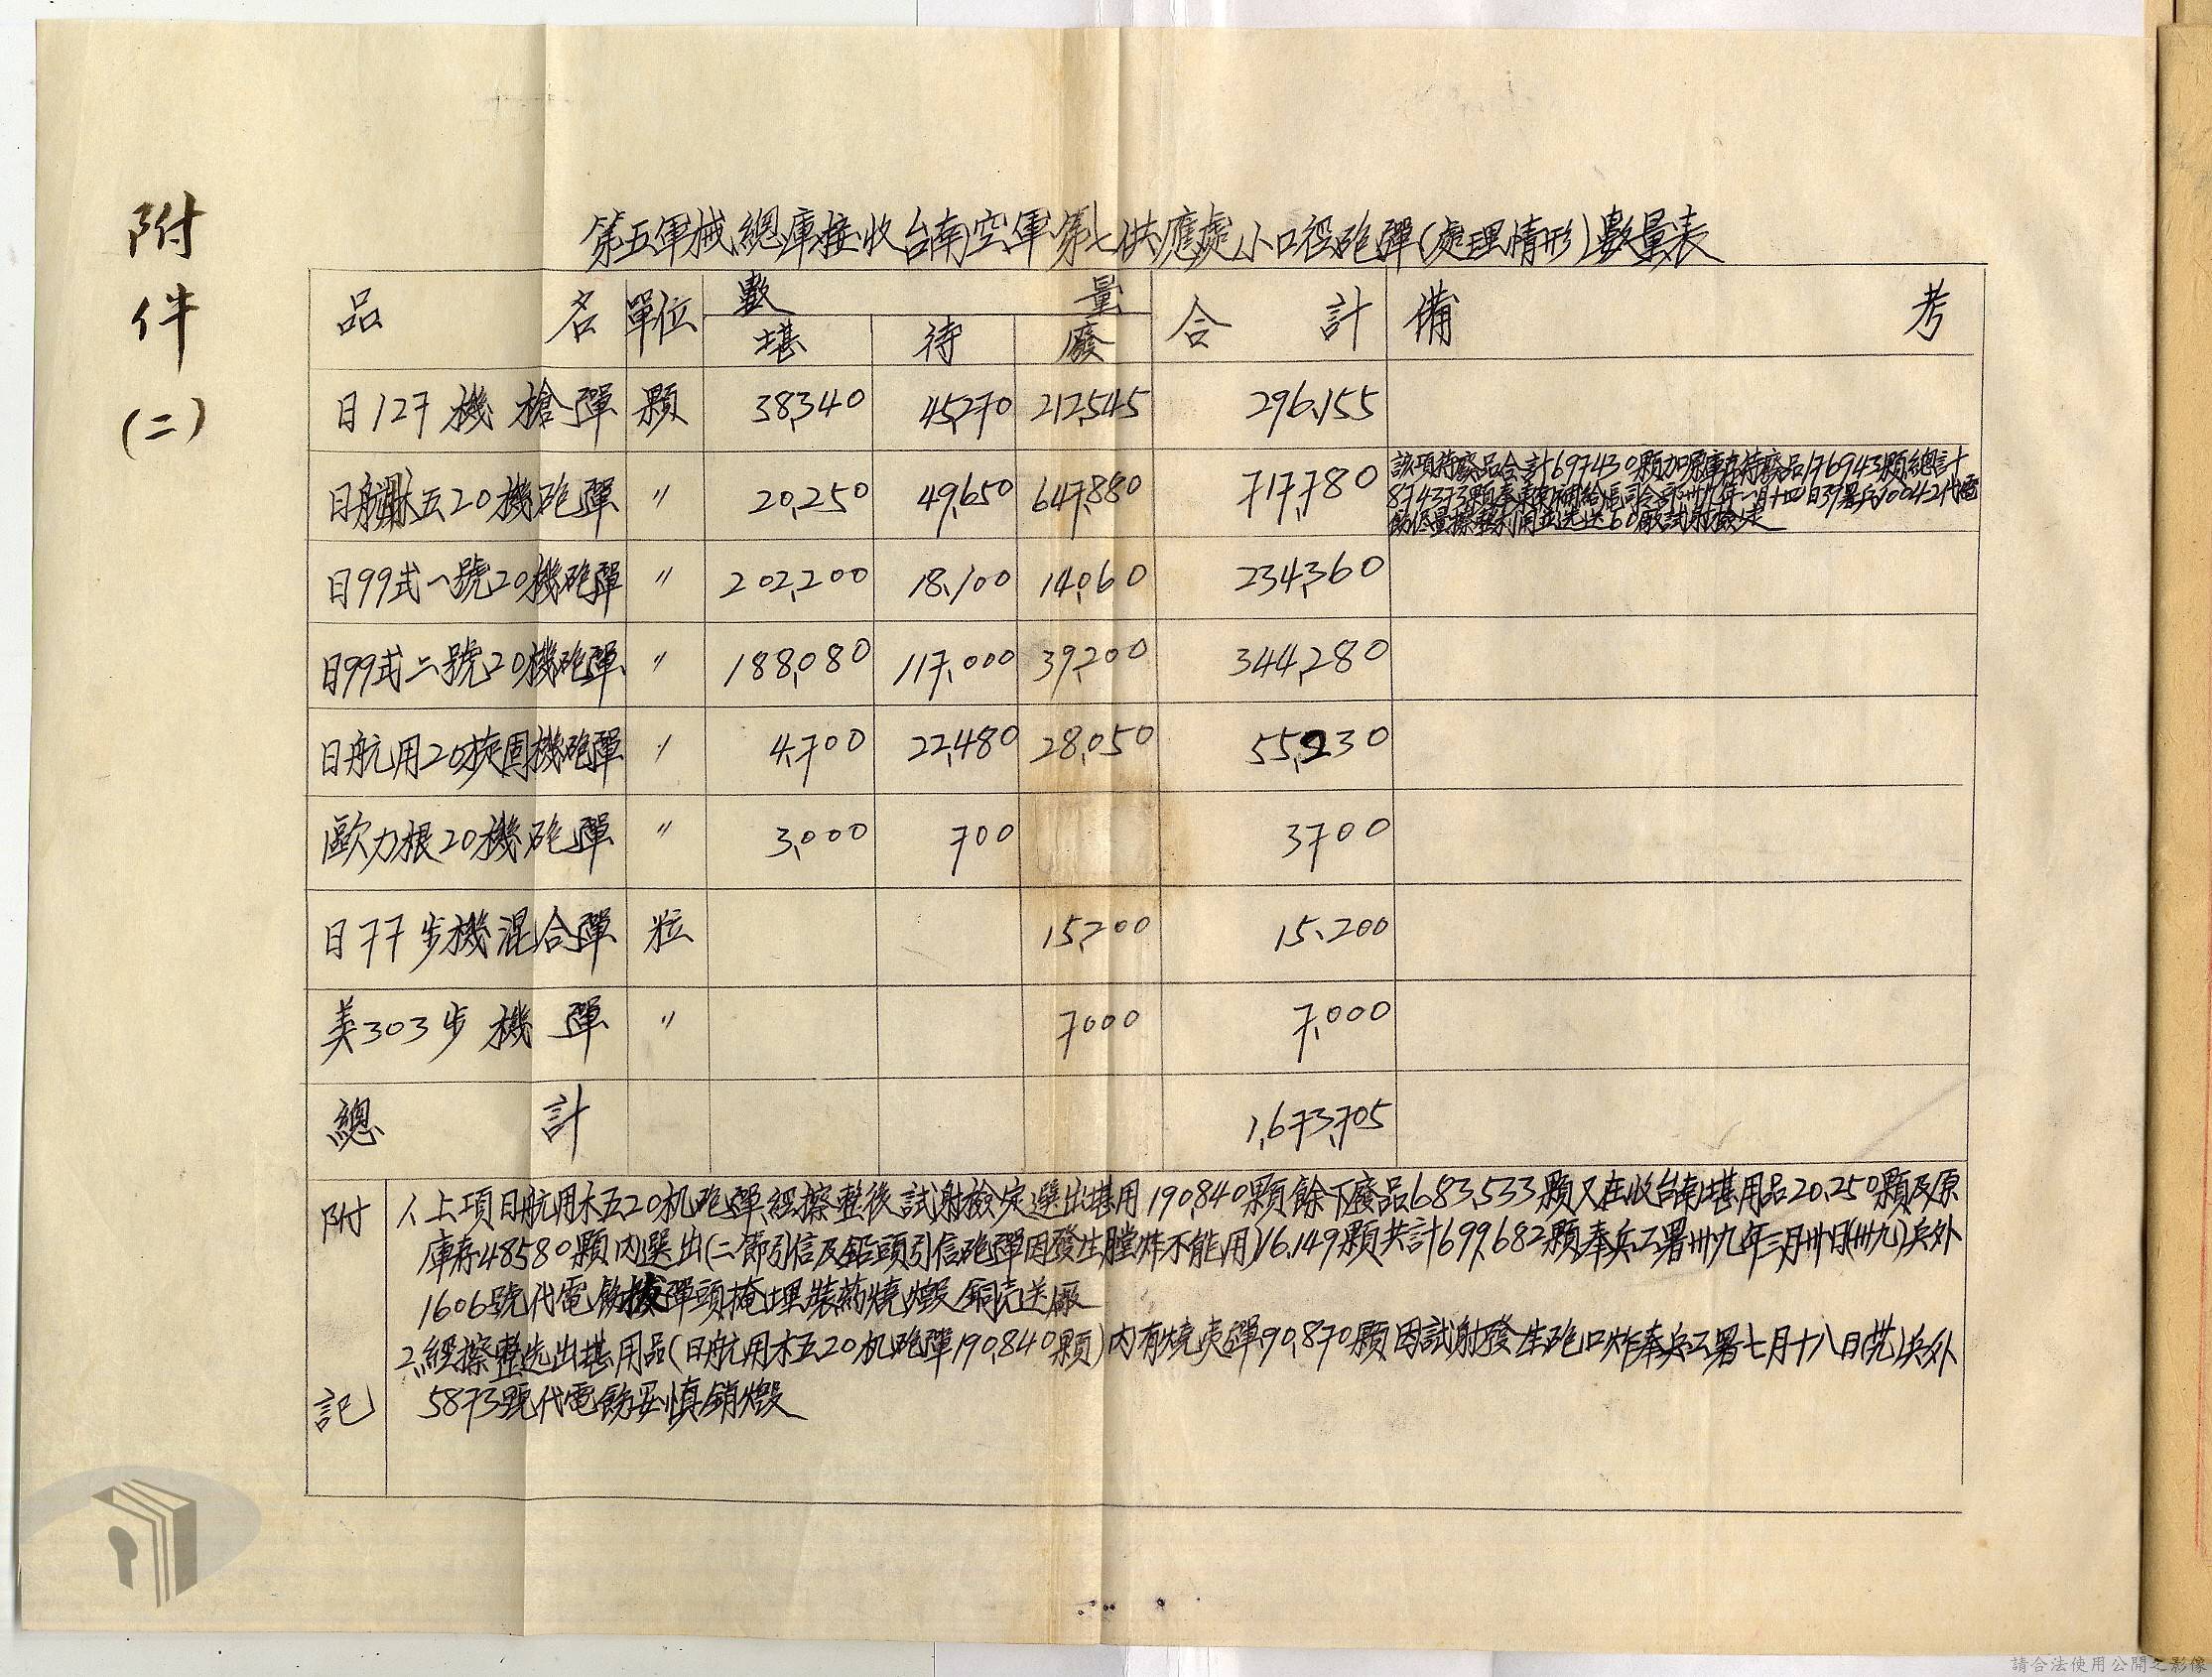 附件(二)
第五軍械總庫接收台南空軍第七供應處小口徑砲彈(處理情形)數量表
品名 單位 數量 合計 備考
堪 待 廢
日127機槍彈 顆 38,340 45,270 212,545 296,155
日航用木五20機砲彈 〃 20,250 49,650 647,880 717,780
該項待廢品合計697430顆加原庫存待廢品176943顆總計
874373顆奉東南補給區司令部卅九年一月十四日39署兵10042代電
飭儘量擦整利用並先送60廠試射檢定
日99式一號20機砲彈 〃 202,200 18,100 14,060 234,360
日99式二號20機砲彈 〃 188,080 117,000 39,200 344,280
日航用20旋固機砲彈 〃 4,700 22,480 28,050 55,230
歐力根20機砲彈 〃 3,000 700 3700
日77步機混合彈 粒 15,200 15,200
美303步機彈 〃 7000 7,000
總計 1,673,705
附記
1、上項日航用木五20机砲彈經擦整後試射檢定選出堪用190,840顆餘下廢品683,533顆又在收台南堪用品20,250顆及原
庫存48580顆內選出(二節引信及鉛頭引信砲彈因發生膛炸不能用)16,149顆共計699,682顆奉兵工署卅九年三月卅日(卅九)兵外
1606號代電飭拔彈頭掩埋裝葯燒燬銅壳送廠
2、經擦整選出堪用品(日航用木五20机砲彈190,840顆)內有燒夷彈90,870顆因試射發生砲口炸奉兵工署七月十八日(卅九)兵外
5873號代電飭妥慎銷燬
請合法使用公開之影像